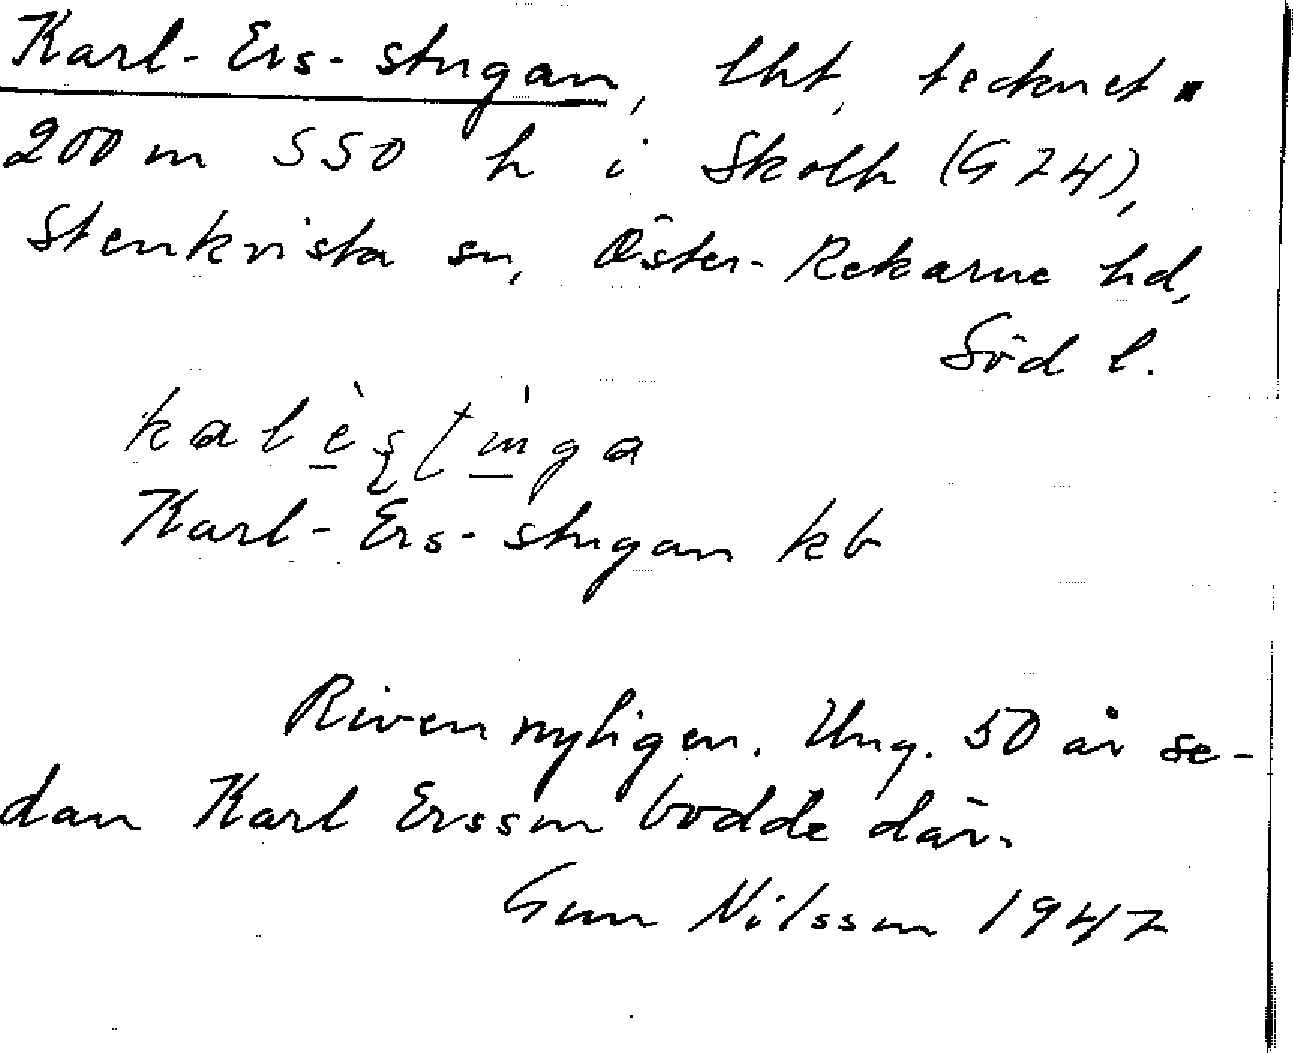 Karl-Ers-stugan, lht, tecknet ▪
200 m SSO h i Skolh (G 24),
Stenkvista sn, Öster-Rekarne hd,
Söd l.
Karl-Ers-stugan kb
Riven nyligen. Ung. 50 år se-
dan Karl Ersson bodde där.
Gun Nilsson 1947